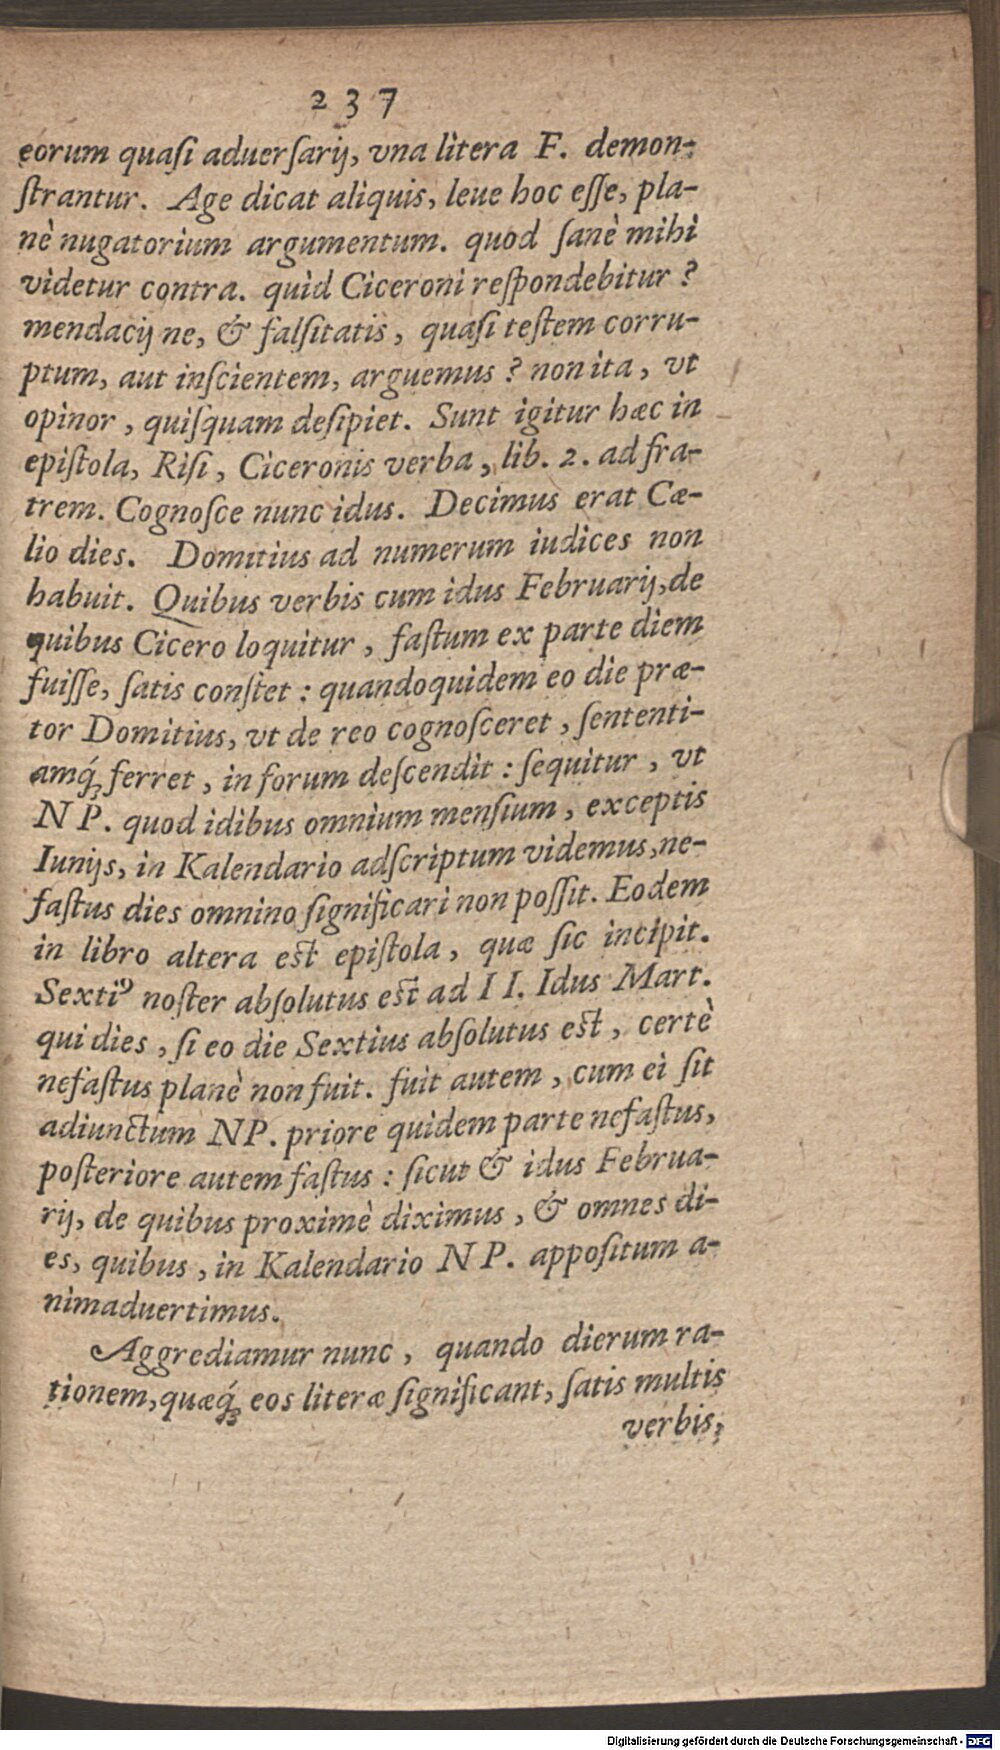 237
eorum quaſi aduerſarij, vna litera F. demon-
ſtrantur. Age dicat aliquis, leue hoc eſſe, pla-
nè nugatorium argumentum. quod ſanè mihi
videtur contra. quid Ciceroni reſpondebitur?
mendacij ne, & falſitatis, quaſi teſtem corru-
ptum, aut inſcientem, arguemus? non ita, vt
opinor, quiſquam deſipiet. Sunt igitur hæc in
epiſtola, Riſi, Ciceronis verba, lib. 2. ad fra-
trem. Cognoſce nunc idus. Decimus erat Cæ-
lio dies. Domitius ad numerum iudices non
habuit. Quibus verbis cum idus Februarij, de
quibus Cicero loquitur, faſtum ex parte diem
fuiſſe, ſatis conſtet: quandoquidem eo die præ-
tor Domitius, vt de reo cognoſceret, ſententi-
amq́; ferret, in forum deſcendit: ſequitur, vt
NP. quod idibus omnium menſium, exceptis
Iunijs, in Kalendario adſcriptum videmus, ne-
faſtus dies omnino ſignificari non poſſit. Eodem
in libro altera eſt epiſtola, quæ ſic incipit.
Sextiꝰ noſter abſolutus eſt ad II. Idus Mart.
qui dies, ſi eo die Sextius abſolutus eſt, certè
nefaſtus planè non fuit. fuit autem, cum ei ſit
adiunctum NP. priore quidem parte nefaſtus,
poſteriore autem faſtus: ſicut & idus Februa-
rij, de quibus proximè diximus, & omnes di-
es, quibus, in Kalendario NP. appoſitum a-
nimaduertimus.
Aggrediamur nunc, quando dierum ra-
tionem, quæq́; eos literæ ſignificant, ſatis multis
verbis,
Digitalisierung gefördert durch die Deutsche Forschungsgemeinschaft - DFG